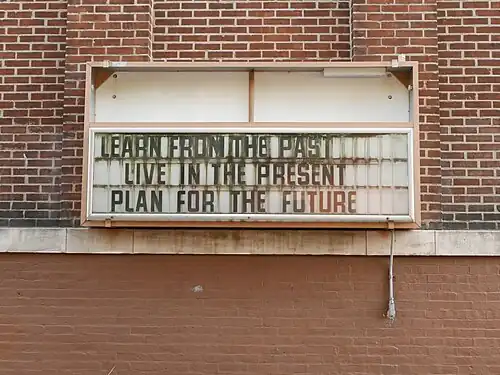 LEARN FROM THE PAST
LIVE IN THE PRESENT
PLAN FOR THE FUTURE